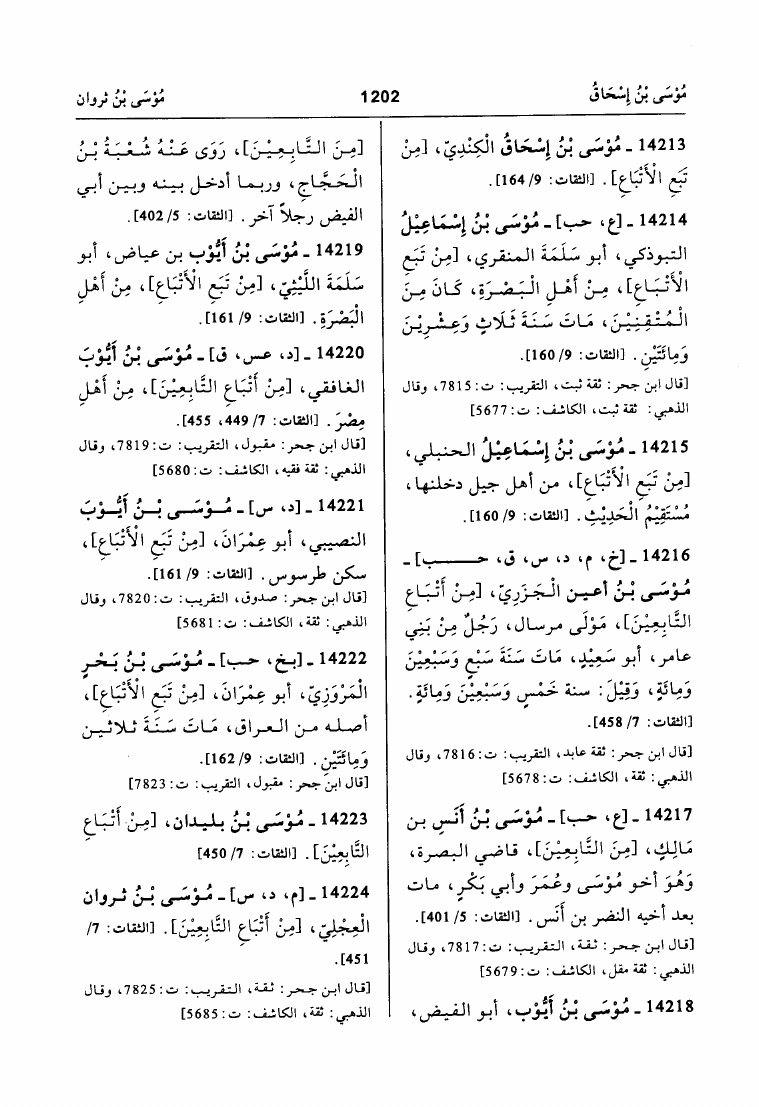 مُوْسَى بْنُ إِسْحَاقُ
1202
مُوْسَى بْنُ ثروان
14213 ـ مُوْسَى بْنُ إِسْحَاقُ الْكِنْدِيّ، [مِنْ
تَبَعِ الأَتْبَاعِ]. [الثقات: 9/ 164].
14214 ـ [ع، حب] ـ مُوْسَى بْنُ إِسْمَاعِيْلُ
التبوذكي، أبو سَلَمَةَ المنقري، [مِنْ تَبَعِ
الأَتْبَاعِ]، مِنْ أَهْلِ الْبَصْرَةِ، كَانَ مِنَ
الْمُتْقِنِيْنَ، مَاتَ سَنَةَ ثَلَاثٍ وَعِشْرِيْنَ
وَمِائَتَيْنِ. [الثقات: 9/ 160].
[قال ابن حجر: ثقة ثبت، التقريب: ت: 7815، وقال
الذهبي: ثقة ثبت، الكاشف: ت: 5677]
14215 ـ مُوْسَى بْنُ إِسْمَاعِيْلُ الحنبلي،
[مِنْ تَبَعِ الأَتْبَاعِ]، من أهل جيل دخلنها،
مُسْتَقِيْمُ الْحَدِيْثِ. [الثقات: 9/ 160].
14216 ـ [خ، م، د، س، ق، حـــب] ـ
مُوْسَى بْنُ أعين الْجَزَرِيّ، [مِنْ أَتْبَاعِ
التَّابِعِيْنَ]، مَوْلَى مرسال، رَجُلٌ مِنْ بَنِي
عامر، أبو سَعِيْدٍ، مَاتَ سَنَةَ سَبْعٍ وَسَبْعِيْنَ
وَمِائَةٍ، وَقِيْلَ: سنة خَمْسٍ وَسَبْعِيْنَ وَمِائَةٍ.
[الثقات: 7/ 458].
[قال ابن حجر: ثقة عابد، التقريب: ت: 7816، وقال
الذهبي: ثقة، الكاشف: ت: 5678]
14217 ـ [ع، حب] ـ مُوْسَى بْنُ أَنَسِ بن
مَالِكٍ، [مِنَ التَّابِعِيْنَ]، قاضي البصرة،
وَهُوَ أخو مُوْسَى وعُمَرَ وأبي بَكْرٍ، مات
بعد أخيه النضر بن أَنَس. [الثقات: 5/ 401].
[قال ابن حجر: ثقة، التقريب: ت: 7817، وقال
الذهبي: ثقة مقل، الكاشف: ت: 5679]
14218 ـ مُوْسَى بْنُ أَيُّوْب، أبو الفيض،
[مِنَ التَّابِعِيْنَ]، رَوَى عَنْهُ شُعْبَةُ بْنُ
الْحَجَّاجِ، وربما أدخل بينه وبين أبي
الفيض رجلاً آخر. [الثقات: 5/ 402].
14219 ـ مُوْسَى بْنُ أَيُّوْب بن عياض، أبو
سَلَمَةَ اللَّيْثِيّ، [مِنْ تَبَعِ الأَتْبَاعِ]، مِنْ أَهْلِ
الْبَصْرَةِ. [الثقات: 9/ 161].
14220 ـ [د، عس، ق] ـ مُوْسَى بْنُ أَيُّوْبَ
الغافقي، [مِنْ أَتْبَاعِ التَّابِعِيْنَ]، مِنْ أَهْلِ
مِصْرَ. [الثقات: 7/ 449، 455].
[قال ابن حجر: مقبول، التقريب: ت: 7819، وقال
الذهبي: ثقة فقيه، الكاشف: ت: 5680]
14221 ـ [د، س] ـ مُوْسَى بْنُ أَيُّوْبَ
النصيبي، أبو عِمْرَانَ، [مِنْ تَبَعِ الأَتْبَاعِ]،
سكن طرسوس. [الثقات: 9/ 161].
[قال ابن حجر: صدوق، التقريب: ت: 7820، وقال
الذهبي: ثقة، الكاشف: ت: 5681]
14222 ـ [بخ، حب] ـ مُوْسَى بْنُ بَحْرٍ
الْمَرْوَزِيّ، أبو عِمْرَانَ، [مِنْ تَبَعِ الأَتْبَاعِ]،
أصله من العراق، مَاتَ سَنَةَ ثلاثين
وَمِائَتَيْنِ. [الثقات: 9/ 162].
[قال ابن حجر: مقبول، التقريب: ت: 7823]
14223 ـ مُوْسَى بْنُ بليدان، [مِنْ أَتْبَاعِ
التَّابِعِيْنَ]. [الثقات: 7/ 450]
14224 ـ [م، د، س] ـ مُوْسَى بْنُ ثروان
الْعِجْلِيّ، [مِنْ أَتْبَاعِ التَّابِعِيْنَ]. [الثقات: 7/
451].
[قال ابن حجر: ثقة، التقريب: ت: 7825، وقال
الذهبي: ثقة، الكاشف: ت: 5685]